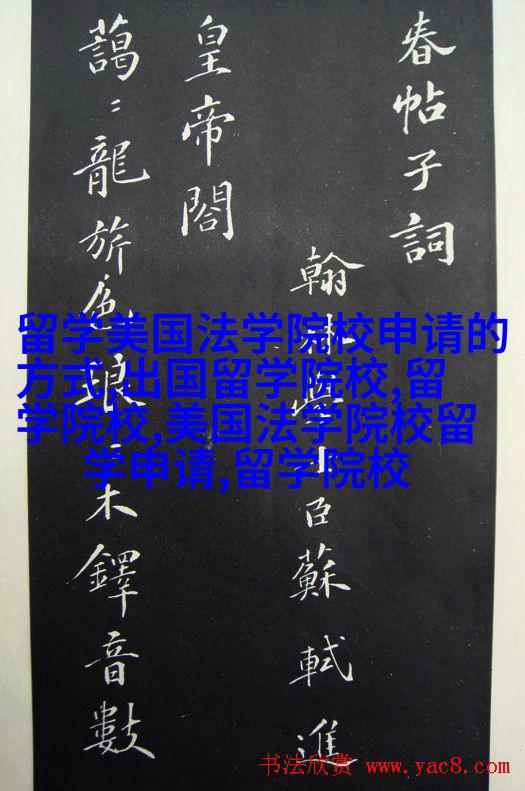 春帖子詞
翰林學士臣蘇軾進
皇帝閤
藹〻龍旂色琅〻木鐸音數
留学美国法学院校申请的
方式,出国留学院校,留
学院校,美国法学院校留
学申请,留学院校
书法欣赏 www.yac8.com